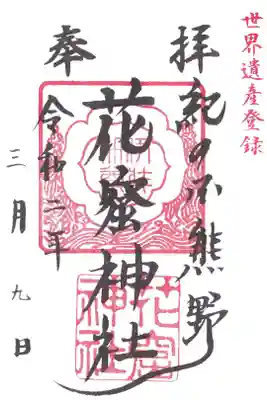 世界遺産登録
奉拝
紀の国熊野
花窟神社
令和二年
三月九日
花窟神社